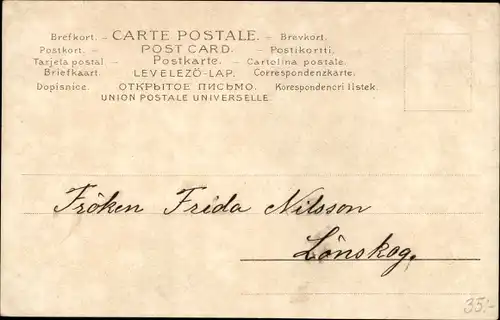 Brefkort. – CARTE POSTALE. – Brevkort.
Postkort. – POST CARD. – Postikortti.
Tarjeta postal – Postkarte. – Cartolina postale.
Briefkaart. LEVELEZÖ-LAP. Correspondenzkarte.
Dopisnice. ОТКРЫТОЕ ПИСЬМО. Korespondencri listek.
UNION POSTALE UNIVERSELLE.
Fröken Frida Nilsson
Lönskog.
35:-